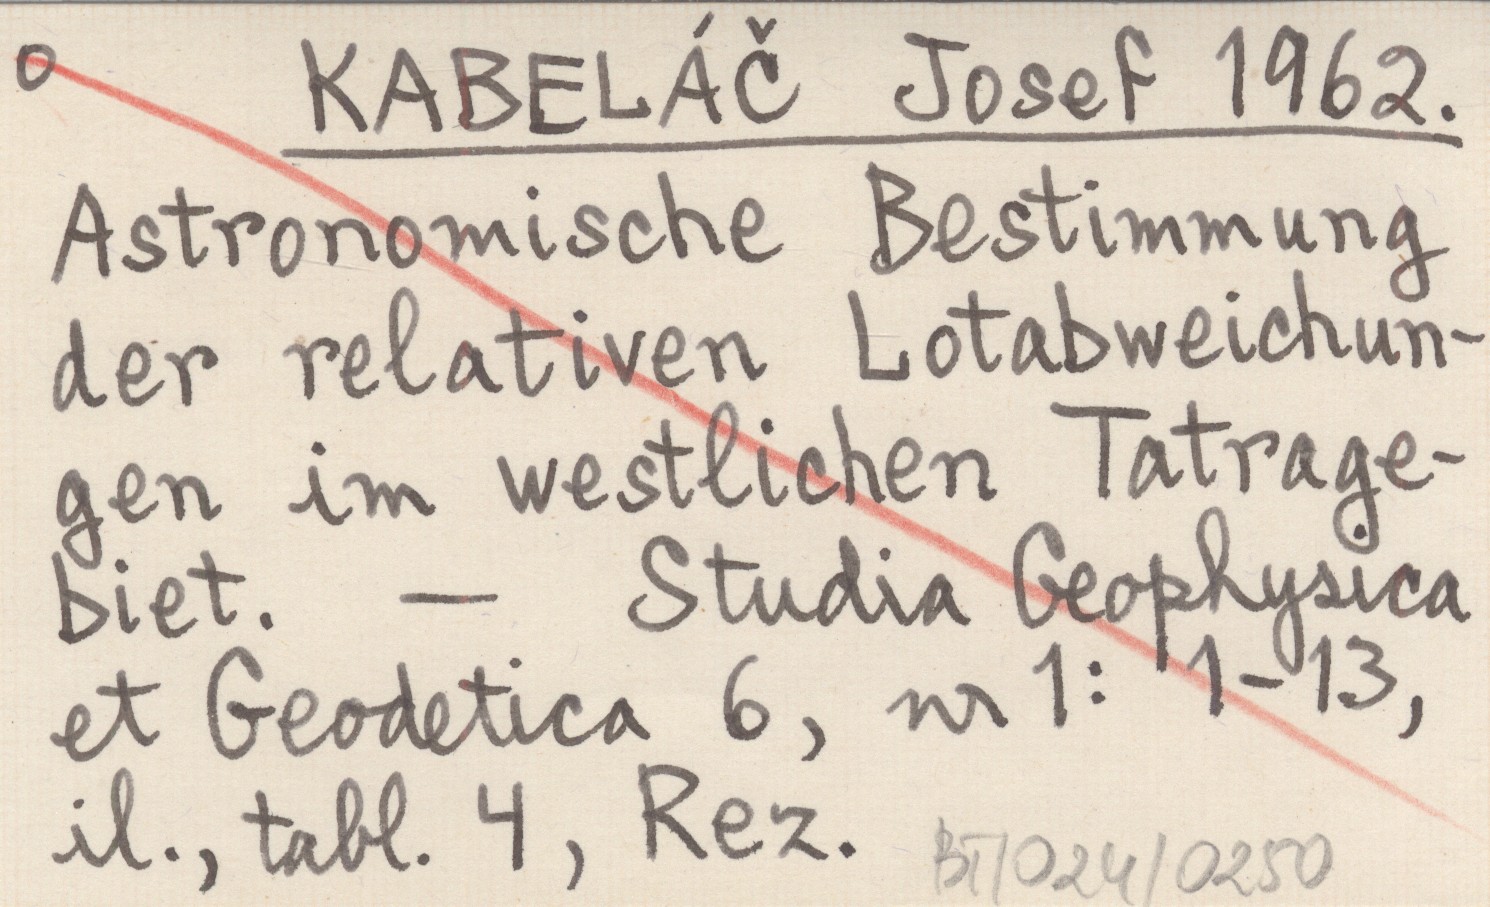 o KABELÁČ Josef 1962.
Astronomische Bestimmung
der relativen Lotabweichun-
gen im westlichen Tatrage-
biet. — Studia Geophysica
et Geodetica 6, nr 1: 1-13,
il., tabl. 4, Rez.
BT/024/0250